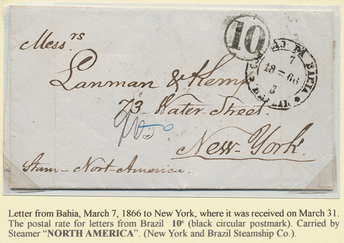 Messrs
10
Lanman & Kemp
7
18-66
3
73. Water Street.
New-York
Steam-North-America.
Letter from Bahia, March 7, 1866 to New York, where it was received on March 31.
The postal rate for letters from Brazil 10c (black circular postmark). Carried by
Steamer "NORTH AMERICA". (New York and Brazil Steamship Co.).